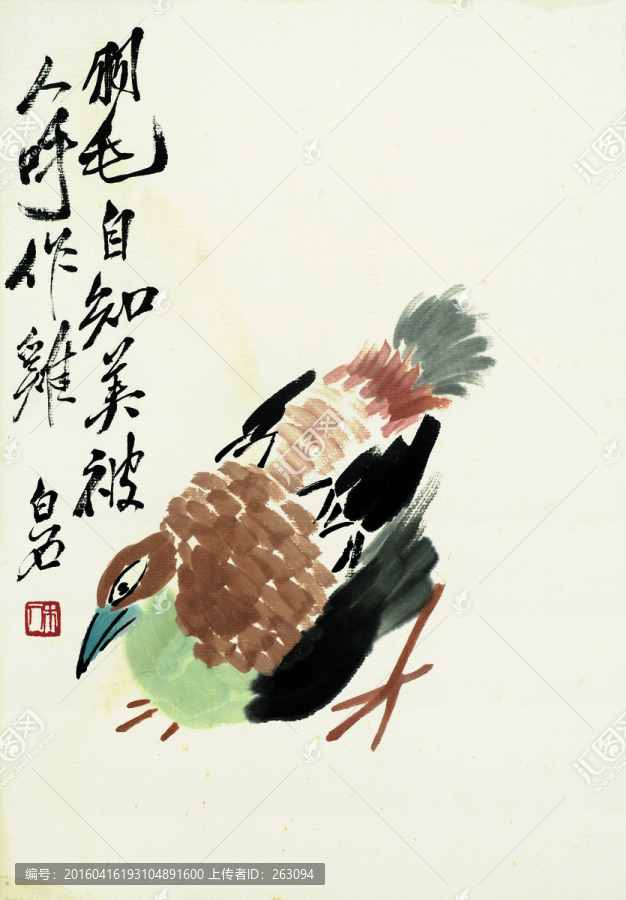 羽毛自知美被
人呼作雞
白石
木人
汇图网
编号：20160416193104891600 上传者ID：263094